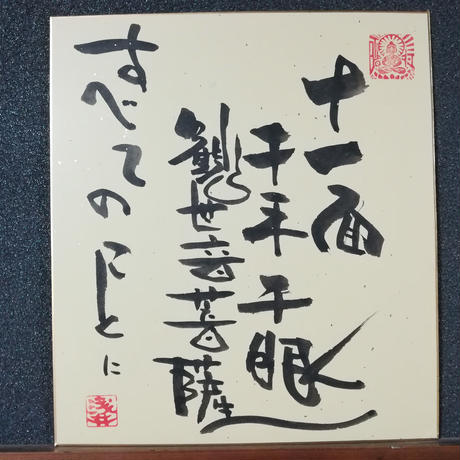 十一面
千手千眼
観世音菩薩
すべての